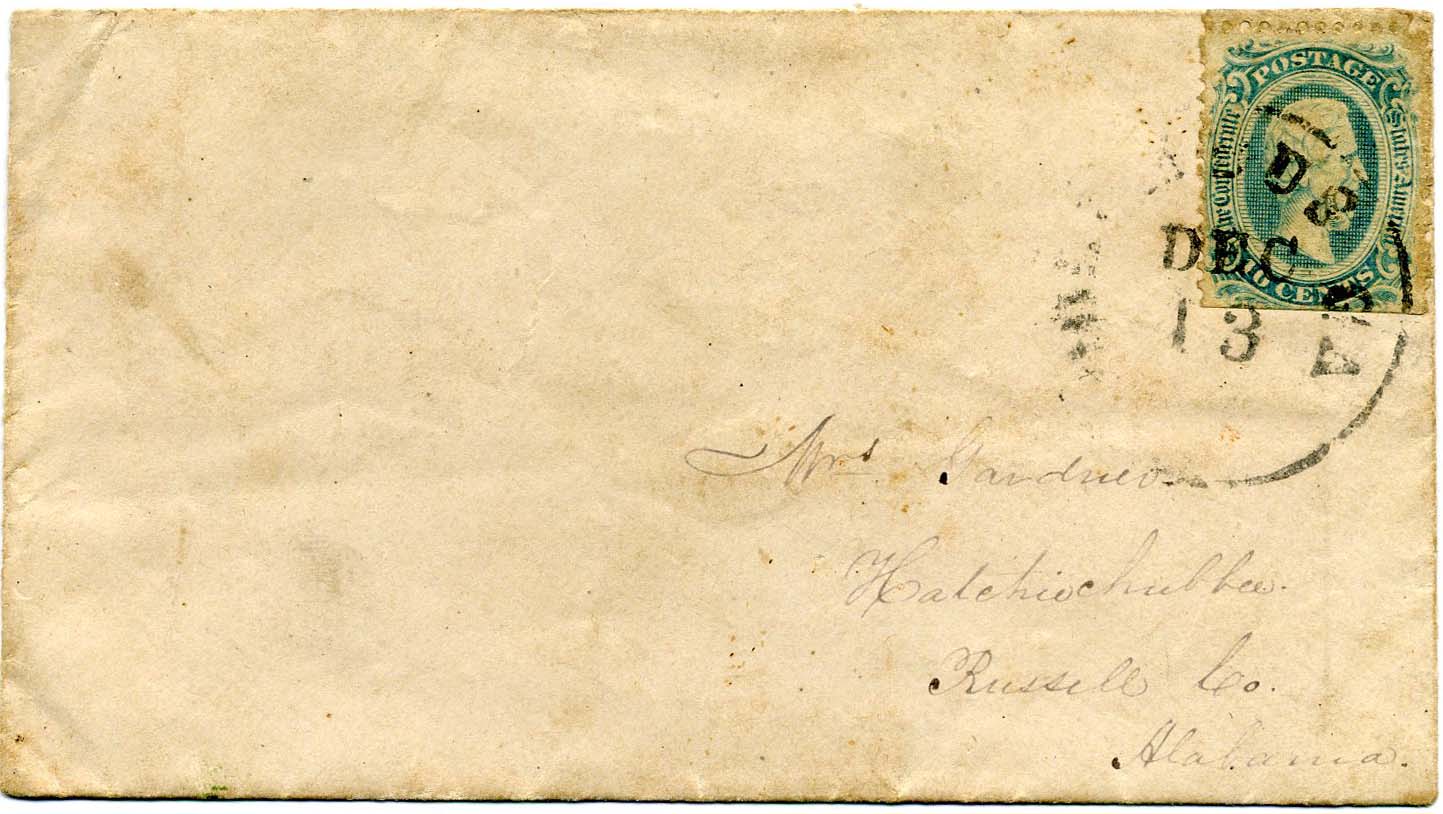 POSTAGE
The Confederate
States America
10 CENTS
DEC
13
Mrs. Gardner
Hatchiechubbee.
Russell Co.
Alabama.